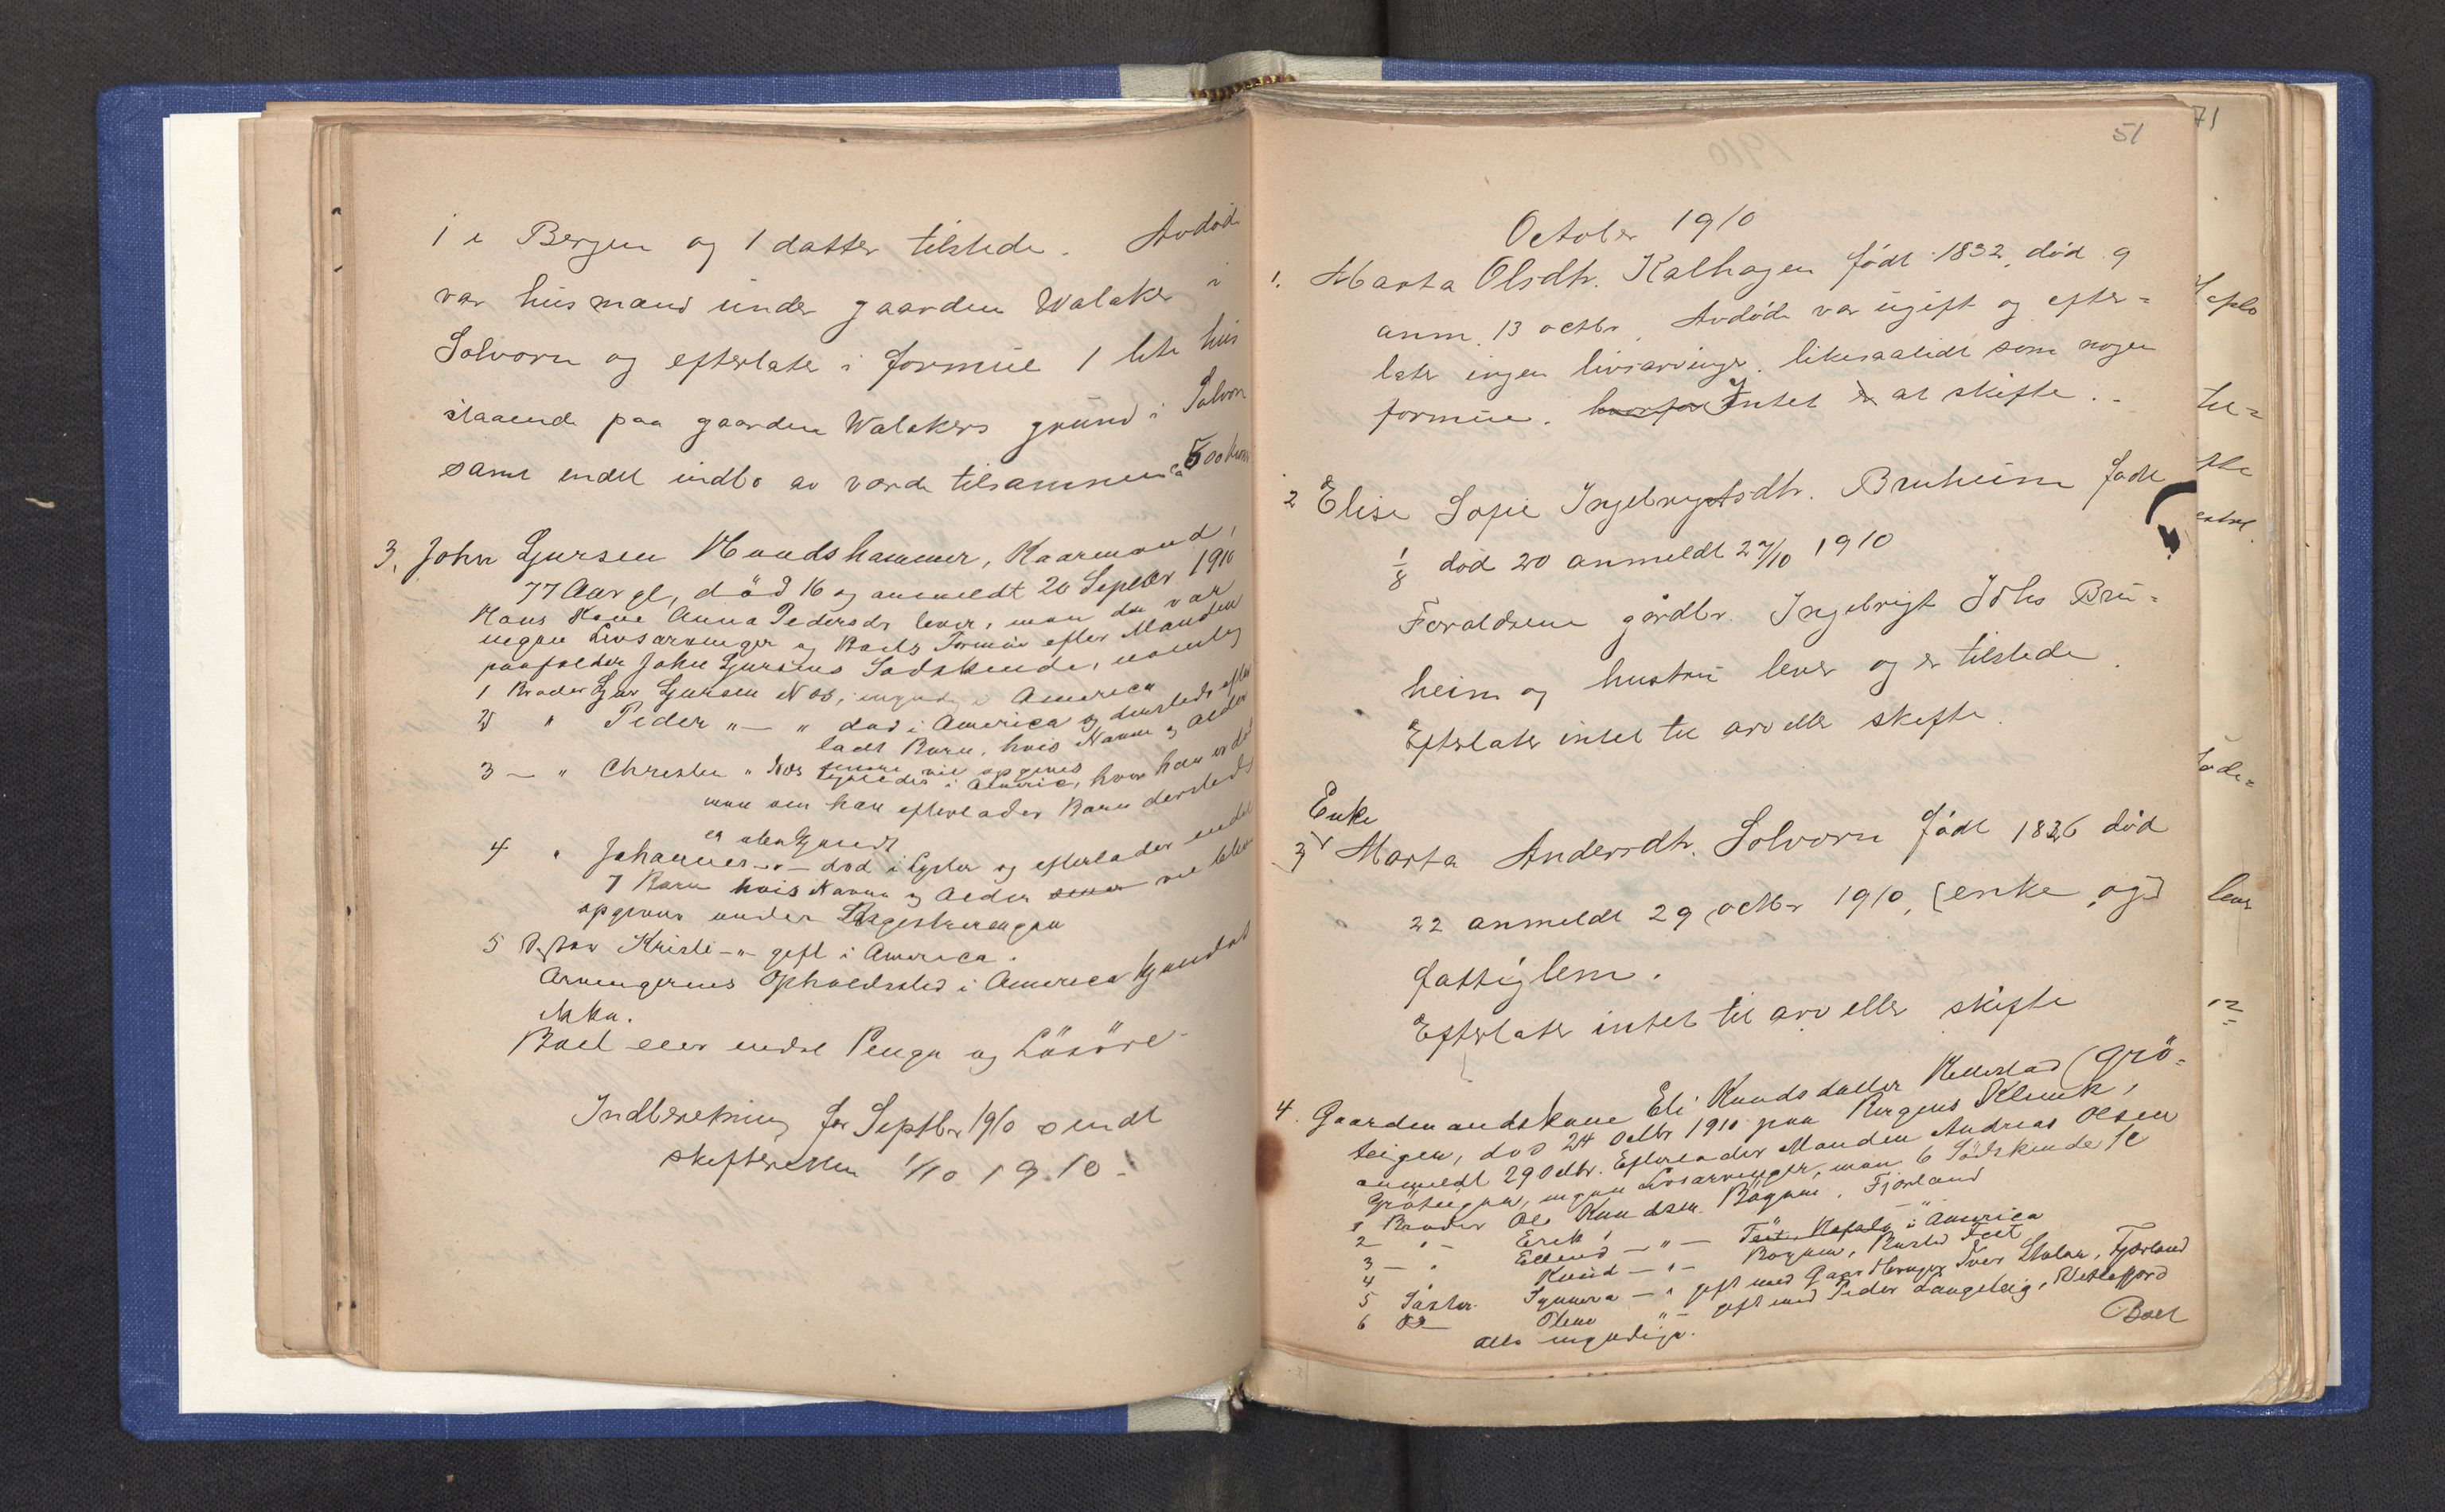 1 i Bergen og 1 datter tilstede. Avdöde
var husmand under gaarden Walaker i
Solvorn og efterlater i formue 1 lite hus
staaende paa gaarden Walakers grund i Solvorn
samt endel indbo av værde tilsammen ca 500 kroner
3. John Gjursen Hundshammer, Kaarmand,
77 Aar gl, død 16 og anmeldt 20 Septbr 1910
Hans Kone Anna Pedersdr lever, men der var
ingen Livsarvinger og Boets Formue efter Manden
paafalder John Gjursens Sødskende, nemlig
1 Broder Gjur Gjursen Næs, myndig i America
2 " Peder " — " død i America og dersteds efter
ladt Børn, hvis Navne og Alder
senere vil opgives
3 — " Christen " Næs ligeledes i Americ, hvor han er død
men om han efterlader Børn dersteds
er ubekjendt
4 " Johannes — " — død i Lyster og efterlader endel
7 Børn hvis Navne og Alder senere vil blive
opgivne under
5 Søster Kristi — " — gift i America.
Arvingernes Opholdssted i America kjendes
ikke.
Boet eier endel Penge og Løsøre
Indberetning for Septbr 1910 sendt
skifteretten 1/10 1910.
51
71
October 1910
1. Marta Olsdtr. Kalhagen født 1832, död 9
anm. 13 octbr. Avdöde var ugift og efter=
later ingen livsarvinger. likesaalidt som nogen
formue. hvorfor Intet er at skifte. -
2 Elise Sofie Ingebrigtsdtr. Bruheim født
1/8 död 20 anmeldt 27/10 1910
Forældrene gårdbr. Ingebrigt Johs Bru=
heim og hustru lever og er tilstede.
Efterlater intet til arv eller skifte.
Enke
3 Marta Andersdtr. Solvorn født 1826 död
22 anmeldt 29 octbr 1910, (enke og)
fattiglem.
Efterlater intet til arv eller skifte
4. Gaardmandskone Eli Knudsdatter Hillestad (Grö=
teigen, död 24 Octbr 1910 paa Bergens Klinik,
anmeldt 29 Octbr. Efterlader Manden Andreas Olsen
Gröteigen, ingen Livsarvinger, men 6 Södskende
1 Broder Ole Knudsen Böyum, Fjærland
2 " — Erik " — " —
3 — " Ellend — " — i America
4 " Knud — " — Böyum,
5 Søster Synneva — " gift med Iver Fjærland
6 Do Oline " — gift med Peder Langeteig, Vetlefjord
alle myndige. Boet